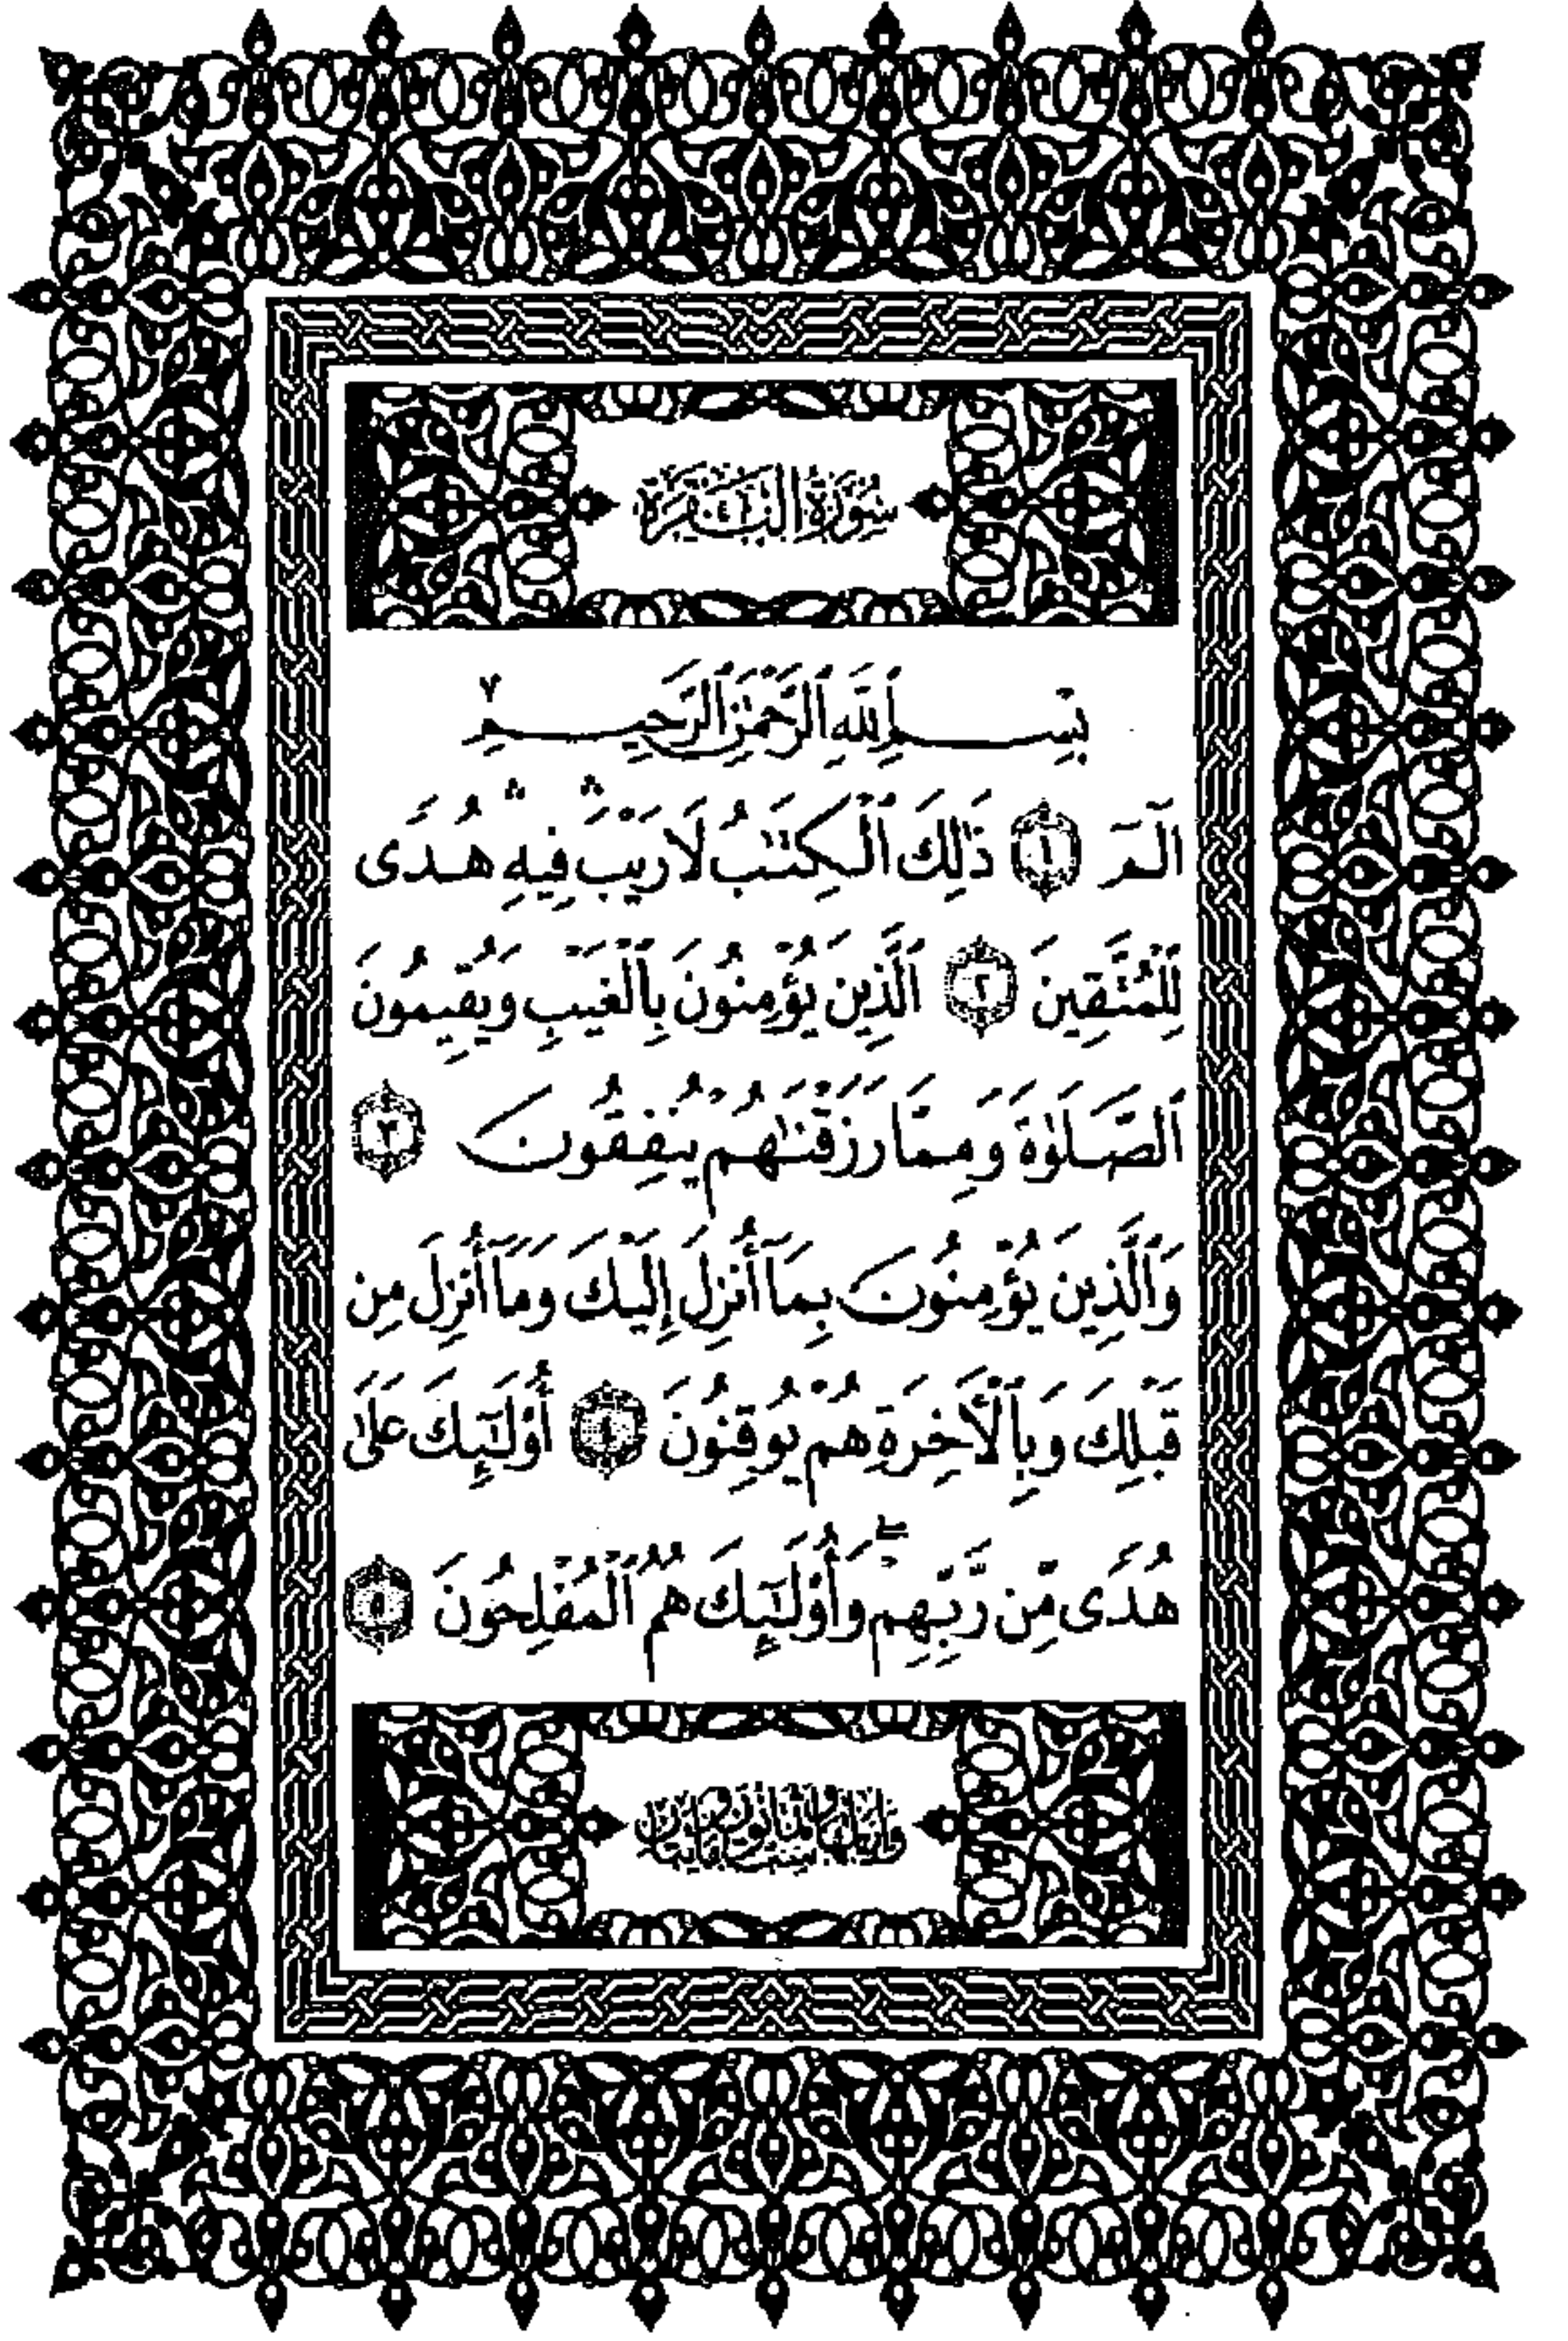 سُورَةُ الْبَقَرَةِ
بِسْمِ ٱللَّهِ ٱلرَّحْمَٰنِ ٱلرَّحِيمِ ٧
الٓمٓ ١ ذَٰلِكَ ٱلْكِتَٰبُ لَا رَيْبَ ۛ فِيهِ ۛ هُدًى
لِّلْمُتَّقِينَ ٢ ٱلَّذِينَ يُؤْمِنُونَ بِٱلْغَيْبِ وَيُقِيمُونَ
ٱلصَّلَوٰةَ وَمِمَّا رَزَقْنَٰهُمْ يُنفِقُونَ ٣
وَٱلَّذِينَ يُؤْمِنُونَ بِمَآ أُنزِلَ إِلَيْكَ وَمَآ أُنزِلَ مِن
قَبْلِكَ وَبِٱلْأَخِرَةِ هُمْ يُوقِنُونَ ٤ أُو۟لَٰٓئِكَ عَلَىٰ
هُدًى مِّن رَّبِّهِمْ ۖ وَأُو۟لَٰٓئِكَ هُمُ ٱلْمُفْلِحُونَ ٥